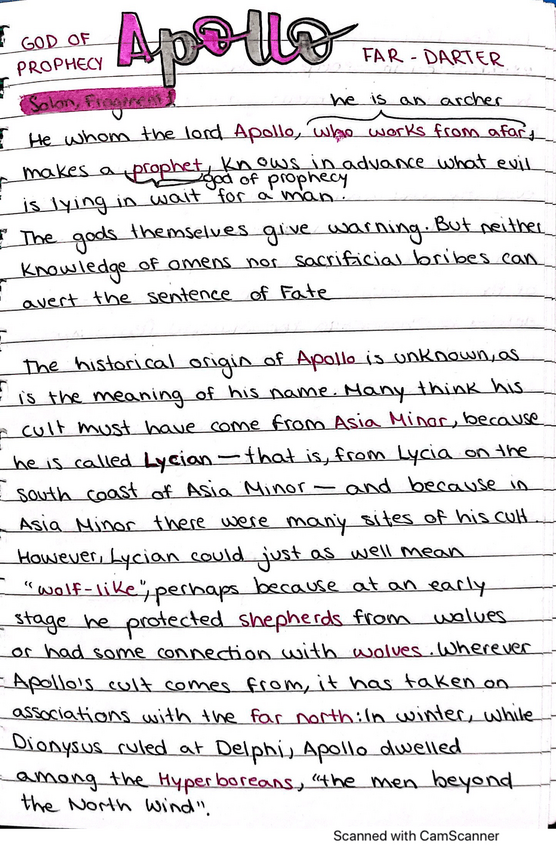 GOD OF
PROPHECY
Apollo
FAR - DARTER
Solon, Fragment 1
he is an archer
He whom the lord Apollo, who works from afar,
makes a prophet, knows in advance what evil
god of prophecy
is lying in wait for a man.
The gods themselves give warning. But neither
knowledge of omens nor sacrificial bribes can
avert the sentence of Fate
The historical origin of Apollo is unknown, as
is the meaning of his name. Many think his
cult must have come from Asia Minor, because
he is called Lycian — that is, from Lycia on the
south coast of Asia Minor — and because in
Asia Minor there were many sites of his cult.
However, Lycian could just as well mean
"wolf-like", perhaps because at an early
stage he protected shepherds from wolves
or had some connection with wolves. Wherever
Apollo's cult comes from, it has taken on
associations with the far north: In winter, while
Dionysus ruled at Delphi, Apollo dwelled
among the Hyperboreans, "the men beyond
the North Wind".
Scanned with CamScanner